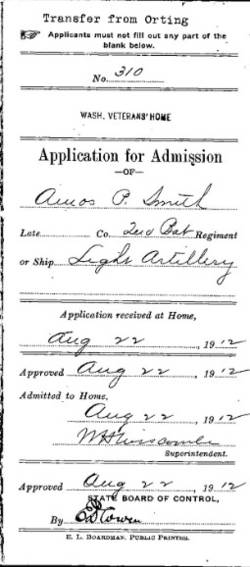 Transfer from Orting
Applicants must not fill out any part of the
blank below.
No. 310
WASH. VETERANS' HOME
Application for Admission
—OF—
Amos P. Smith
Late Co. 2nd Bat Regiment
or Ship Light Artillery
Application received at Home,
Aug 22, 1912
Approved Aug 22, 1912
Admitted to Home,
Aug 22, 1912
Superintendent.
Approved Aug 22, 1912
STATE BOARD OF CONTROL,
By
E. L. BOARDMAN, PUBLIC PRINTER.